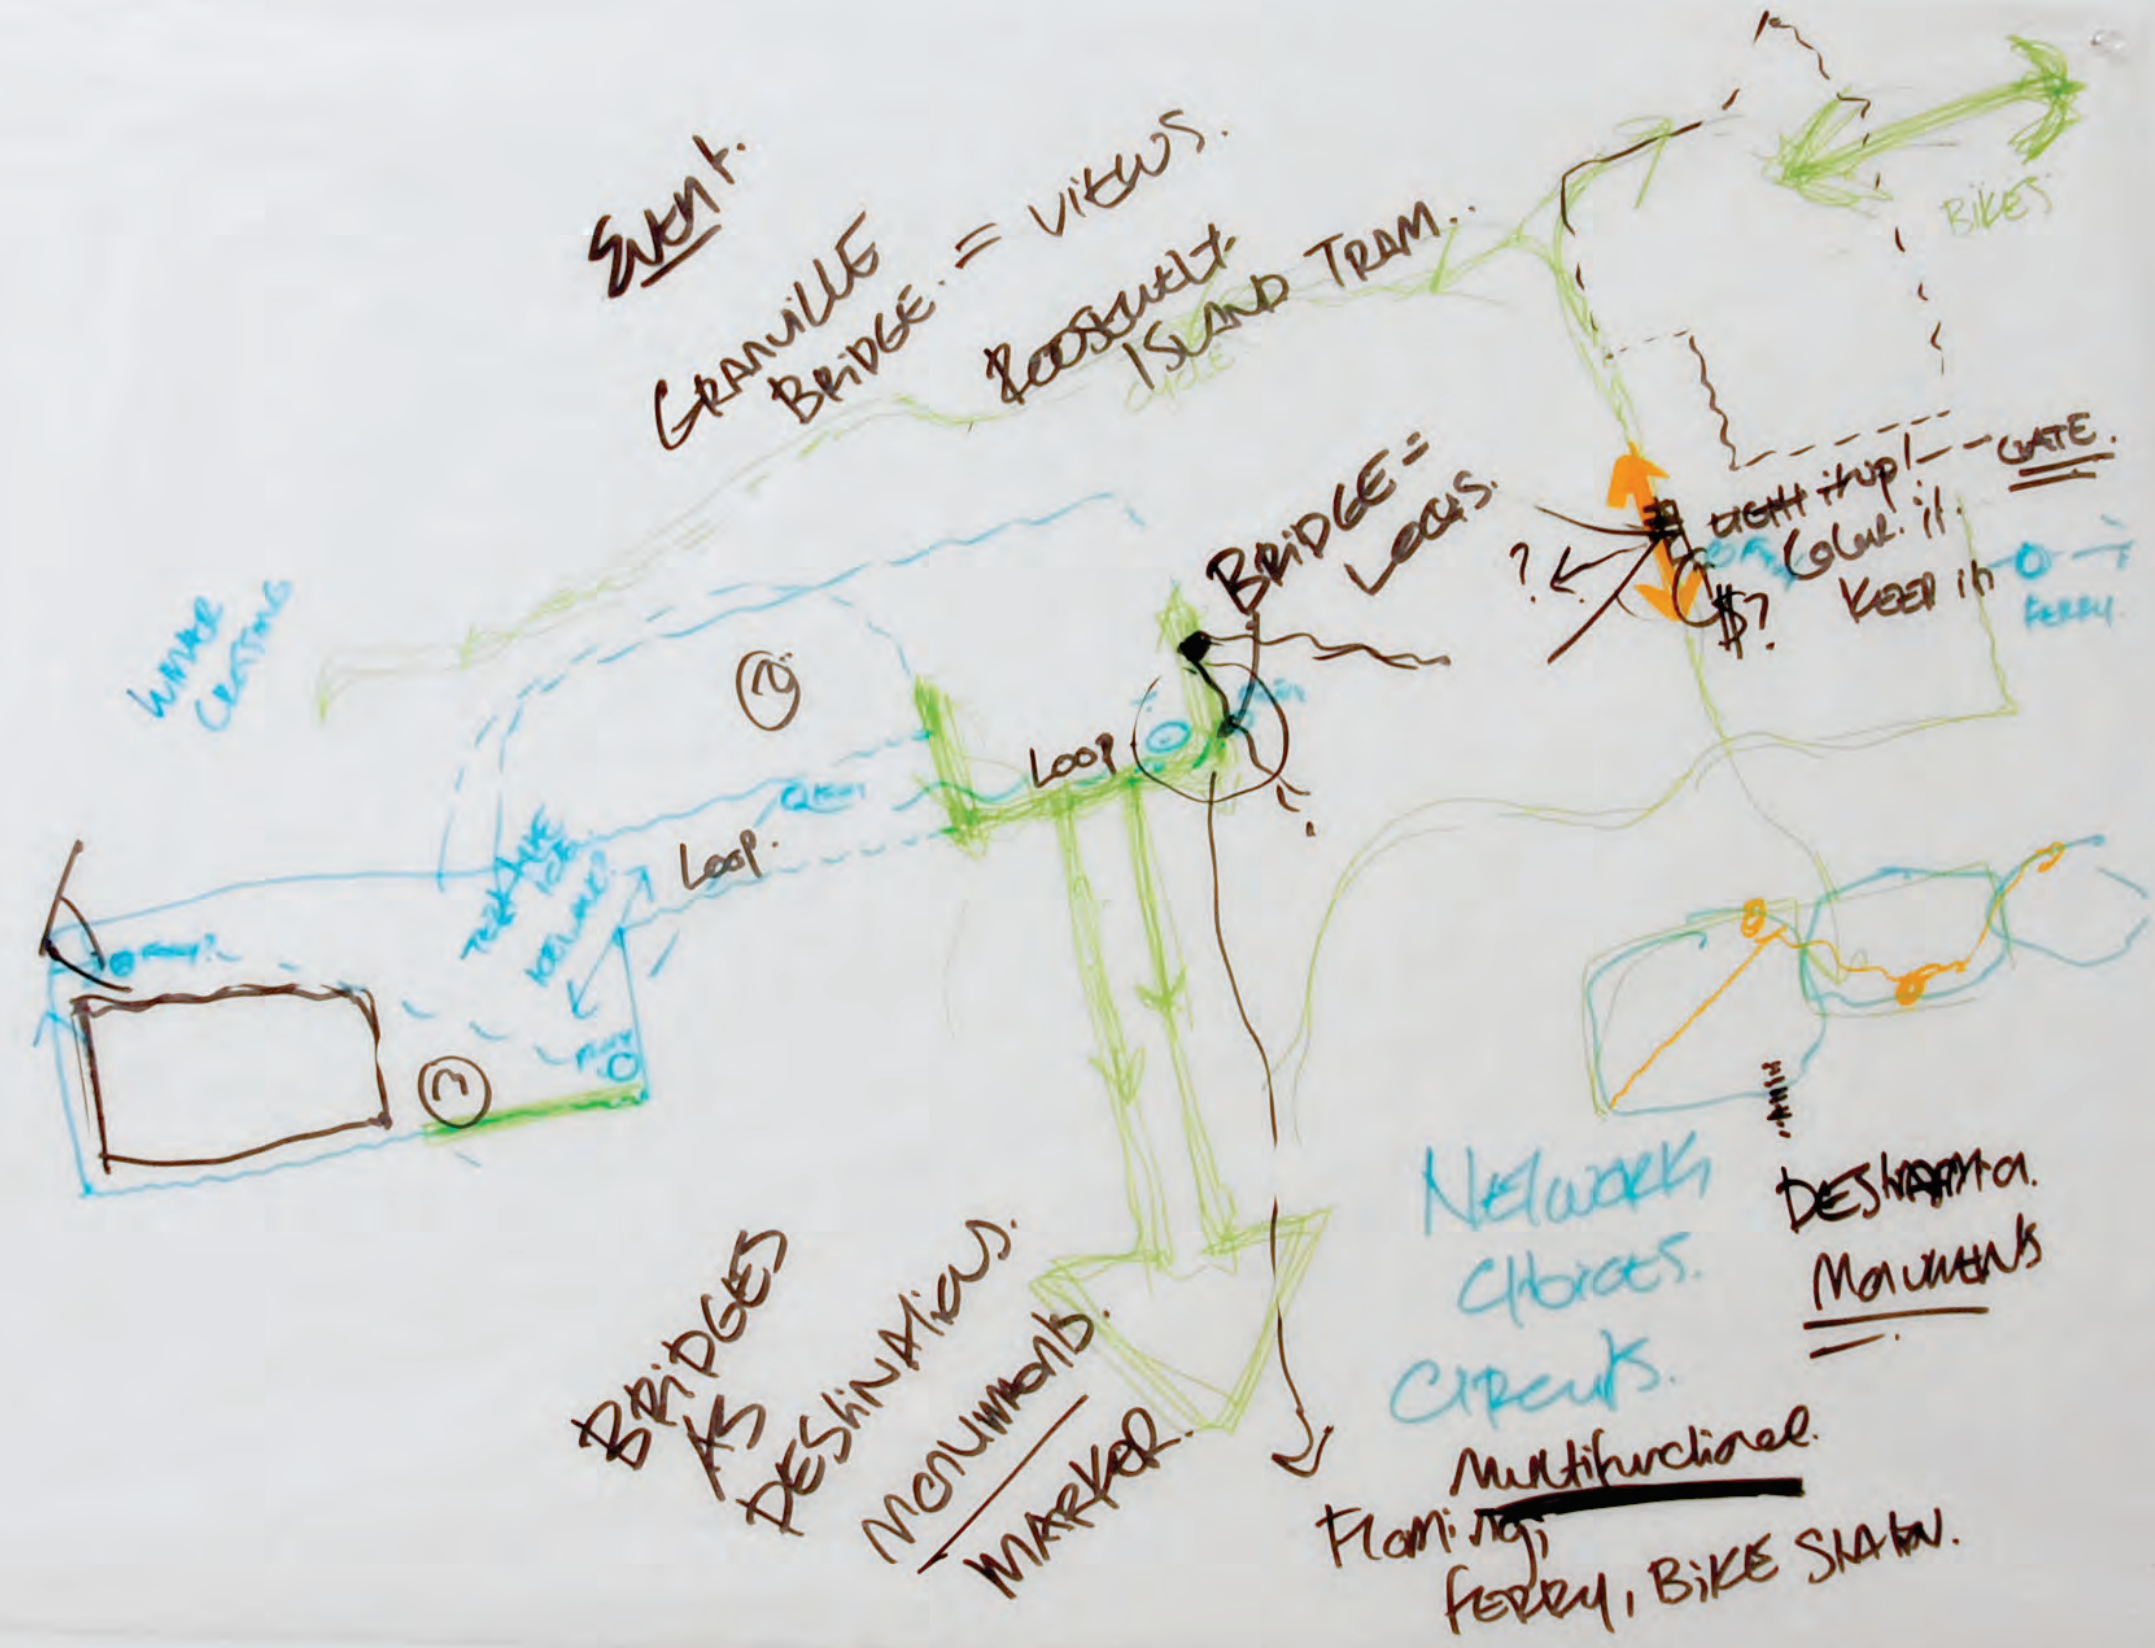 Event.
GRANVILLE
BRIDGE. = VIEWS.
ROOSEVELT
ISLAND TRAM..
CYCLE
BIKES
GATE.
LIGHT it up!
Colour it.
KEEP it
$?
?
FERRY.
BRIDGE =
WATER
Loop
Loop.
BRIDGES
AS
DESTINATIONS.
MONUMENTS.
MARKER.
NETWORK
CHOICES.
CIRCUITS.
MONUMENTS
Multifunctional.
Framing,
FERRY, BIKE STATION.